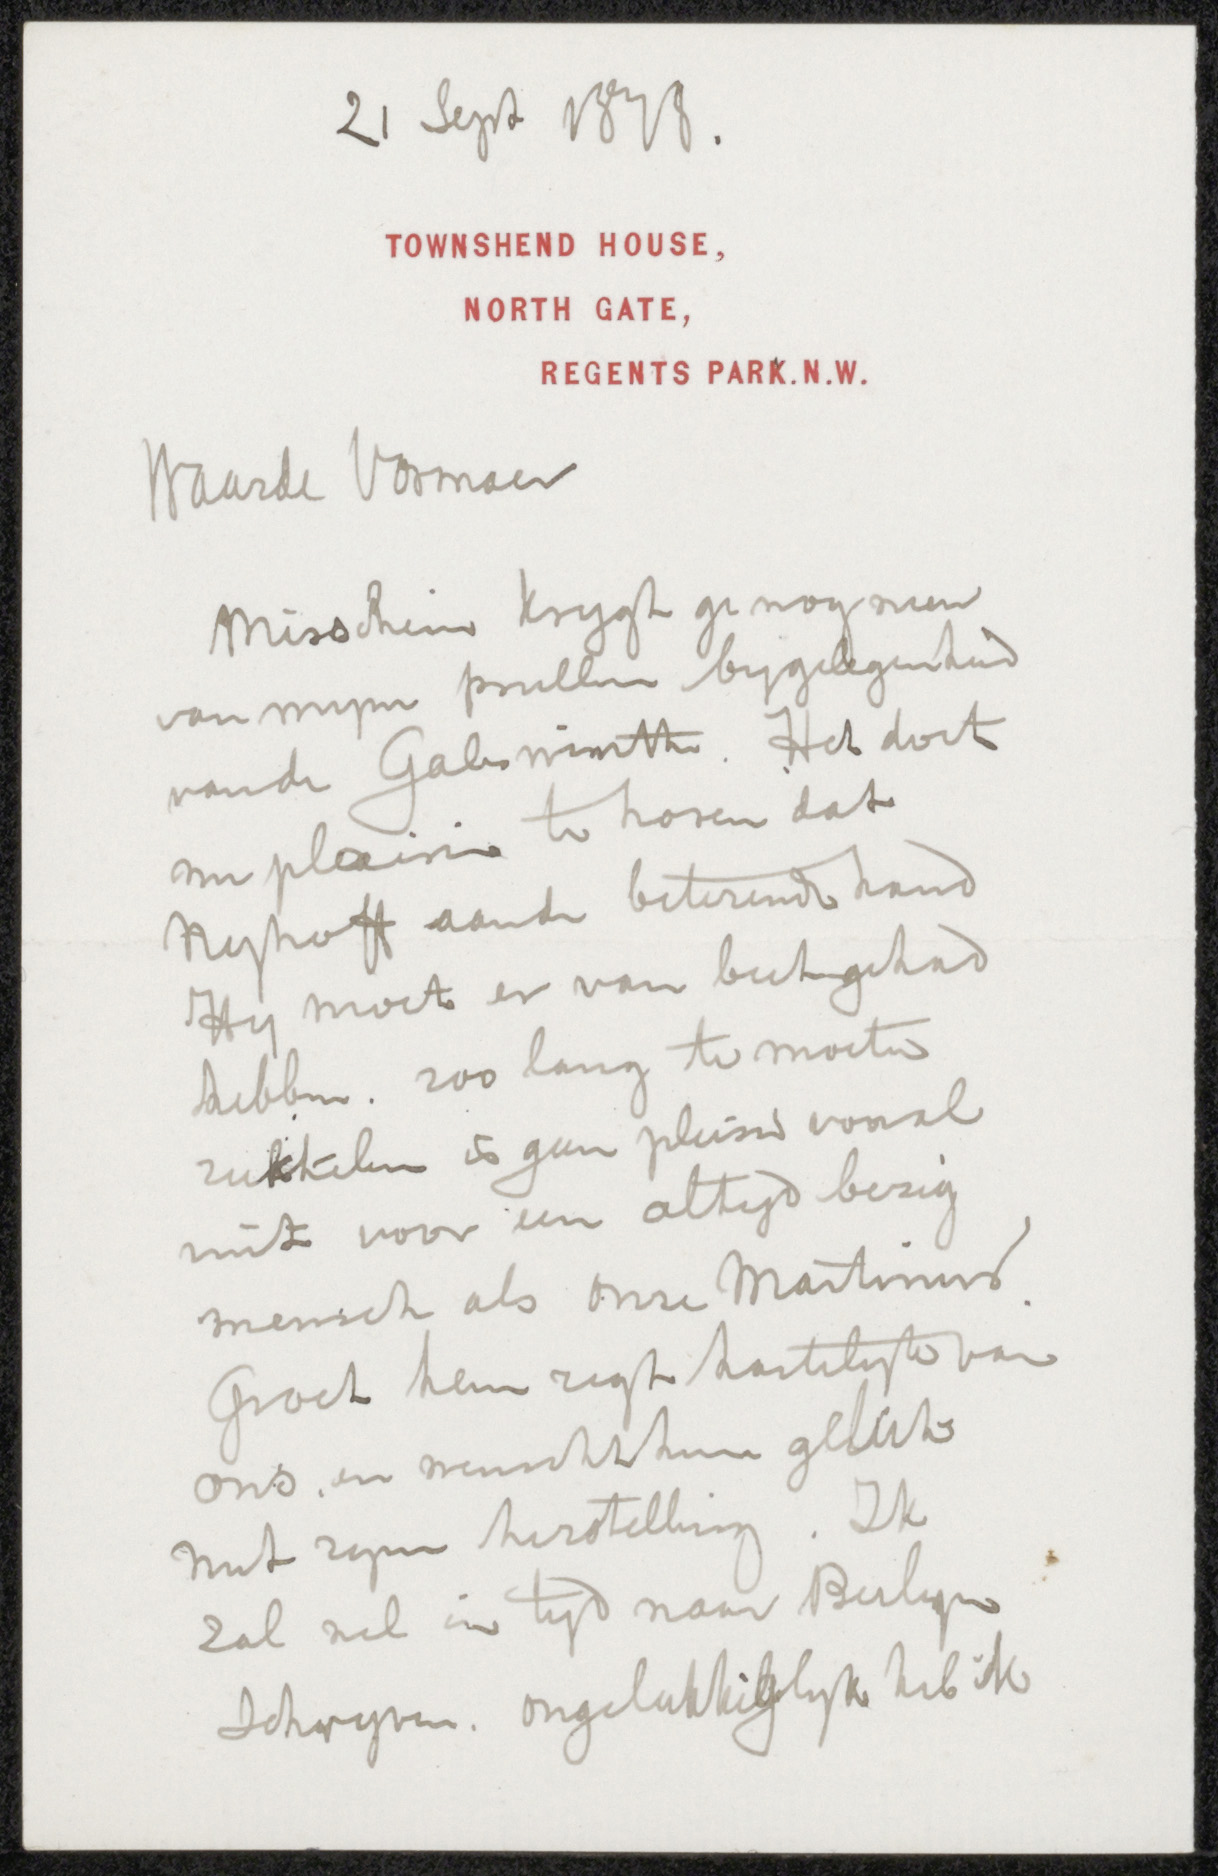 21 Sept 1878.
TOWNSHEND HOUSE,
NORTH GATE,
REGENTS PARK.N.W.
Waarde Vosmaer
Misschien krygt ge nog
van myne prullen bygelegenheid
vande Galswintha. Het doet
me plaisier te horen dat
Nyhoff aande beterende hand
Hy moet er van gehad
hebben. zoo lang te moeten
sukkelen is geen pleisier vooral
niet voor een altyd bezig
mensch als onze Martinus.
Groet hem regt hartelyk van
ons. en wenscht hem geluk
met zyne herstelling. Ik
zal wel in tyd naar Berlyn
schryven. ongelukkiglyk heb ik